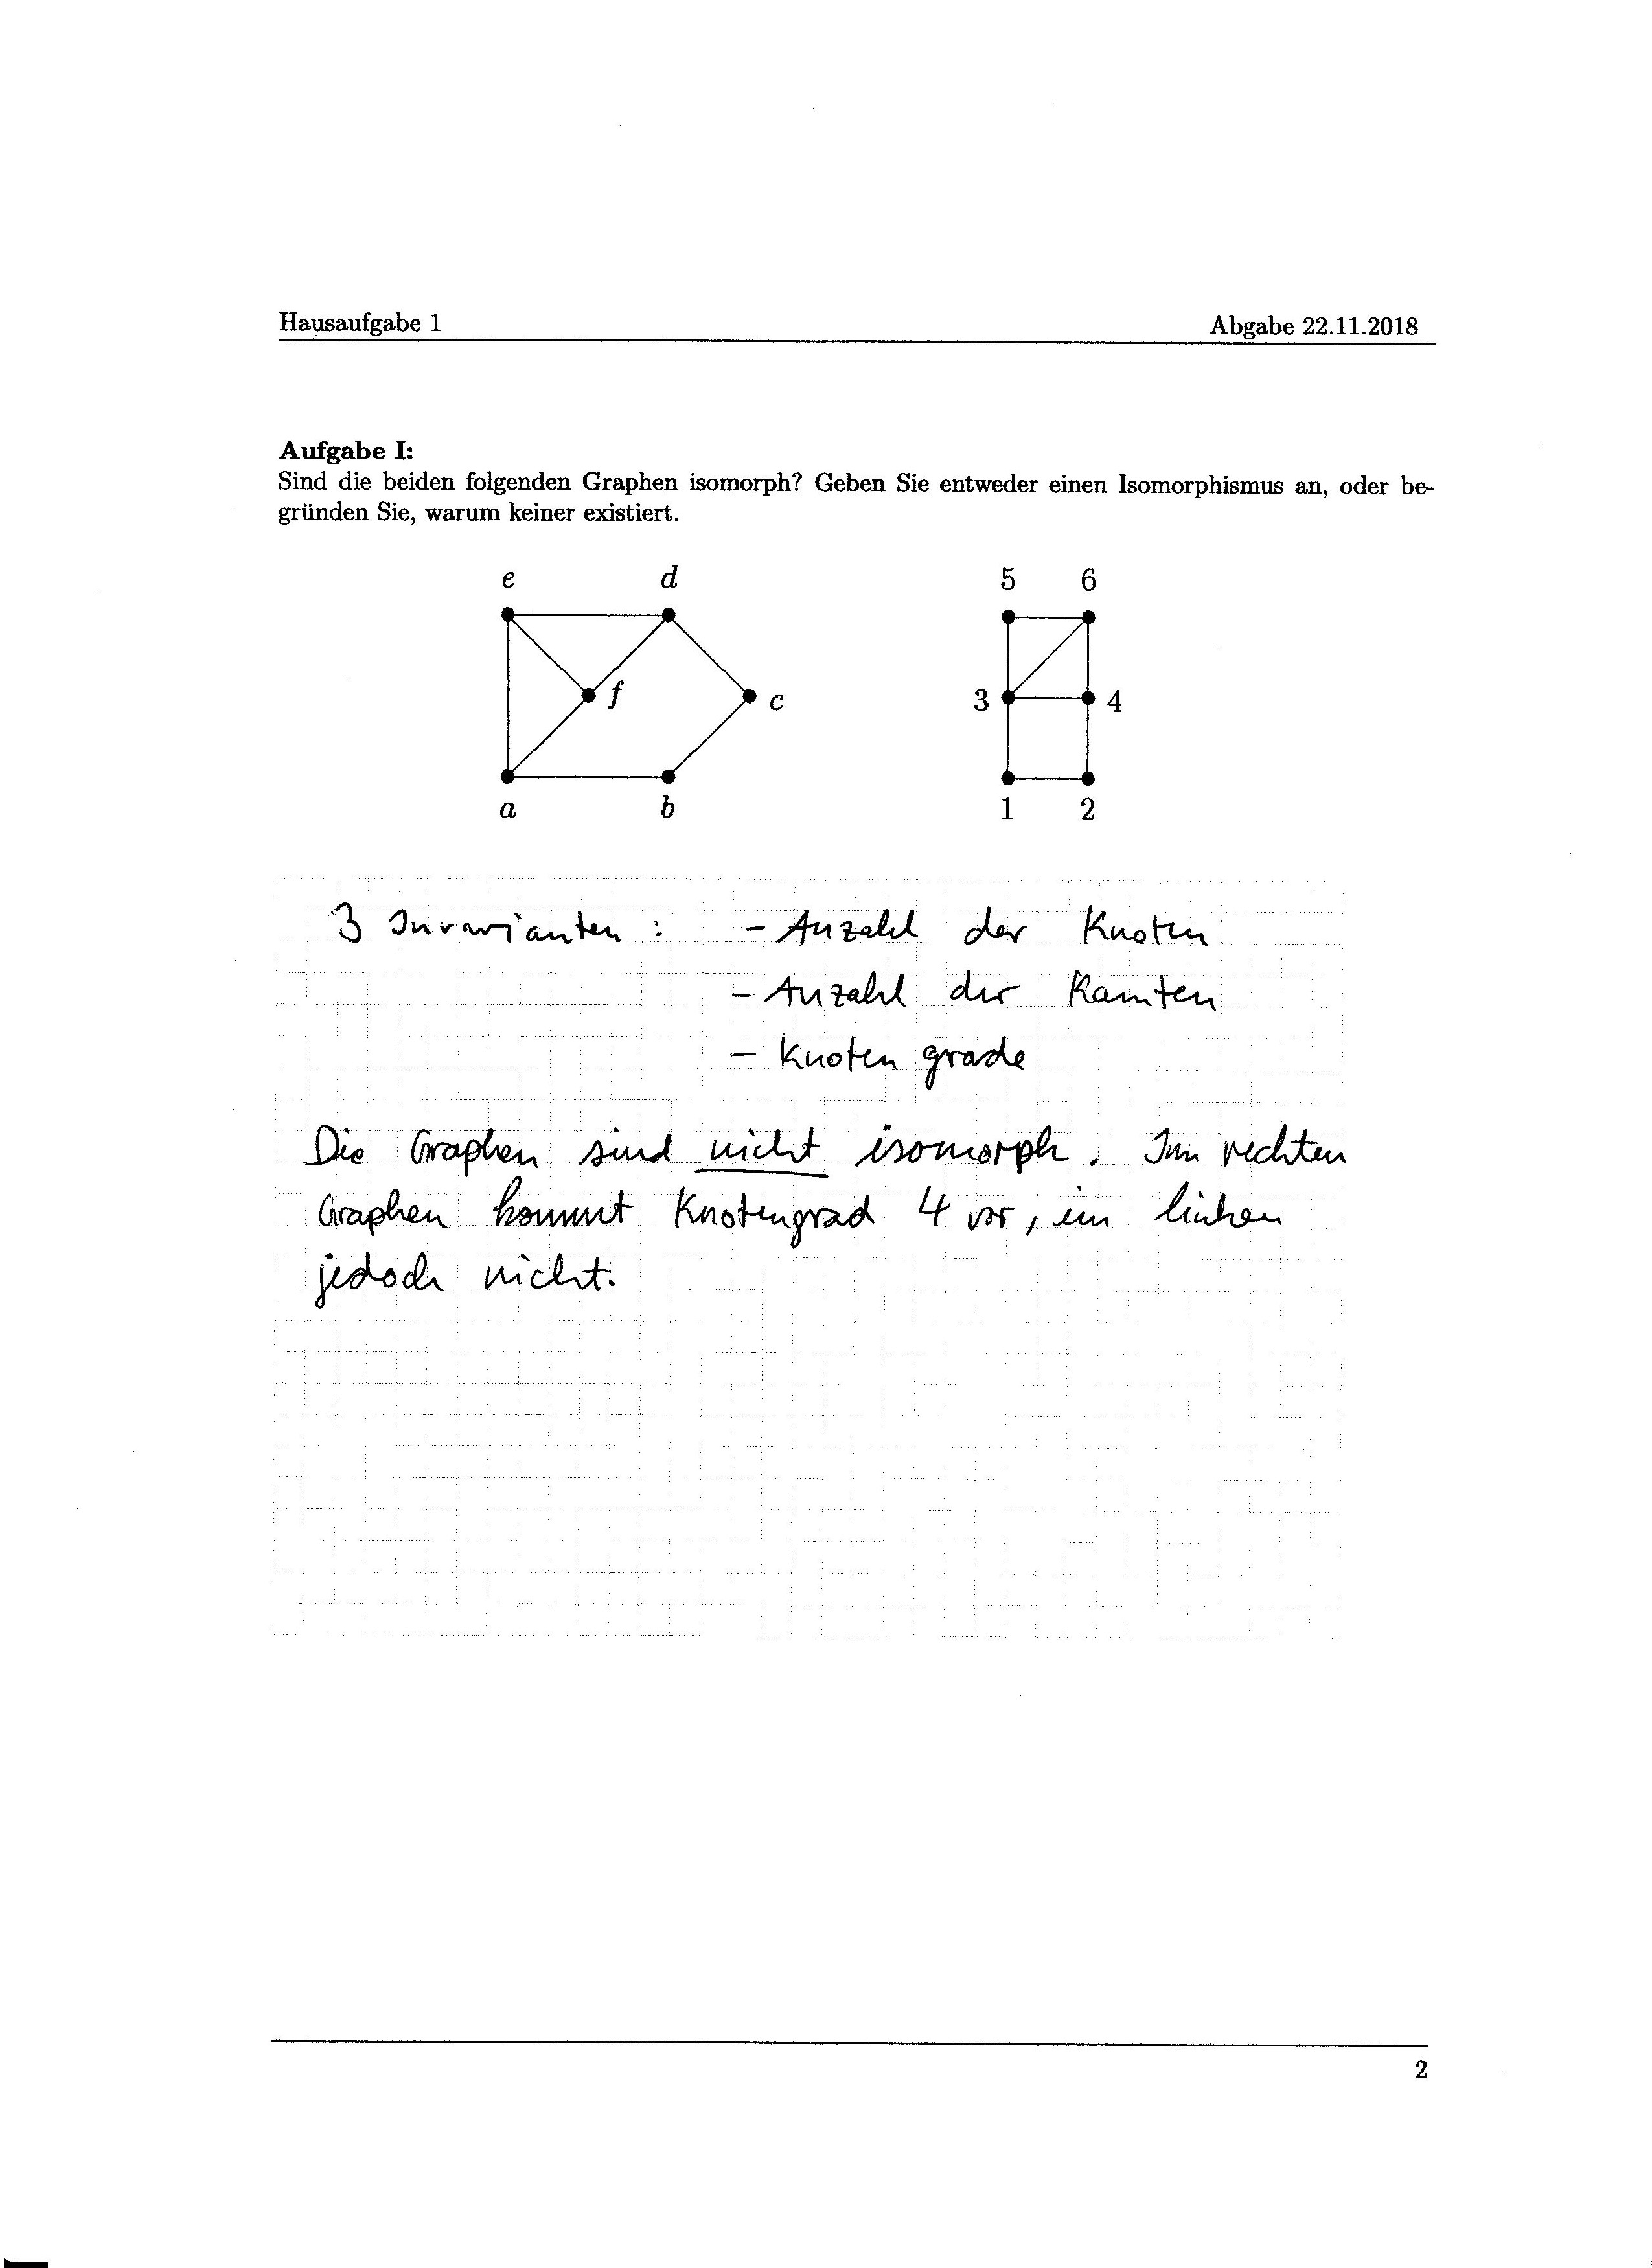 Hausaufgabe 1 Abgabe 22.11.2018
Aufgabe I:
Sind die beiden folgenden Graphen isomorph? Geben Sie entweder einen Isomorphismus an, oder be-
gründen Sie, warum keiner existiert.
e d 5 6
f c 3 4
a b 1 2
3 Invarianten : - Anzahl der Knoten
- Anzahl der Kanten
- Knotengrade
Die Graphen sind nicht isomorph. Im rechten
Graphen kommt Knotengrad 4 vor, im linken
jedoch nicht.
2